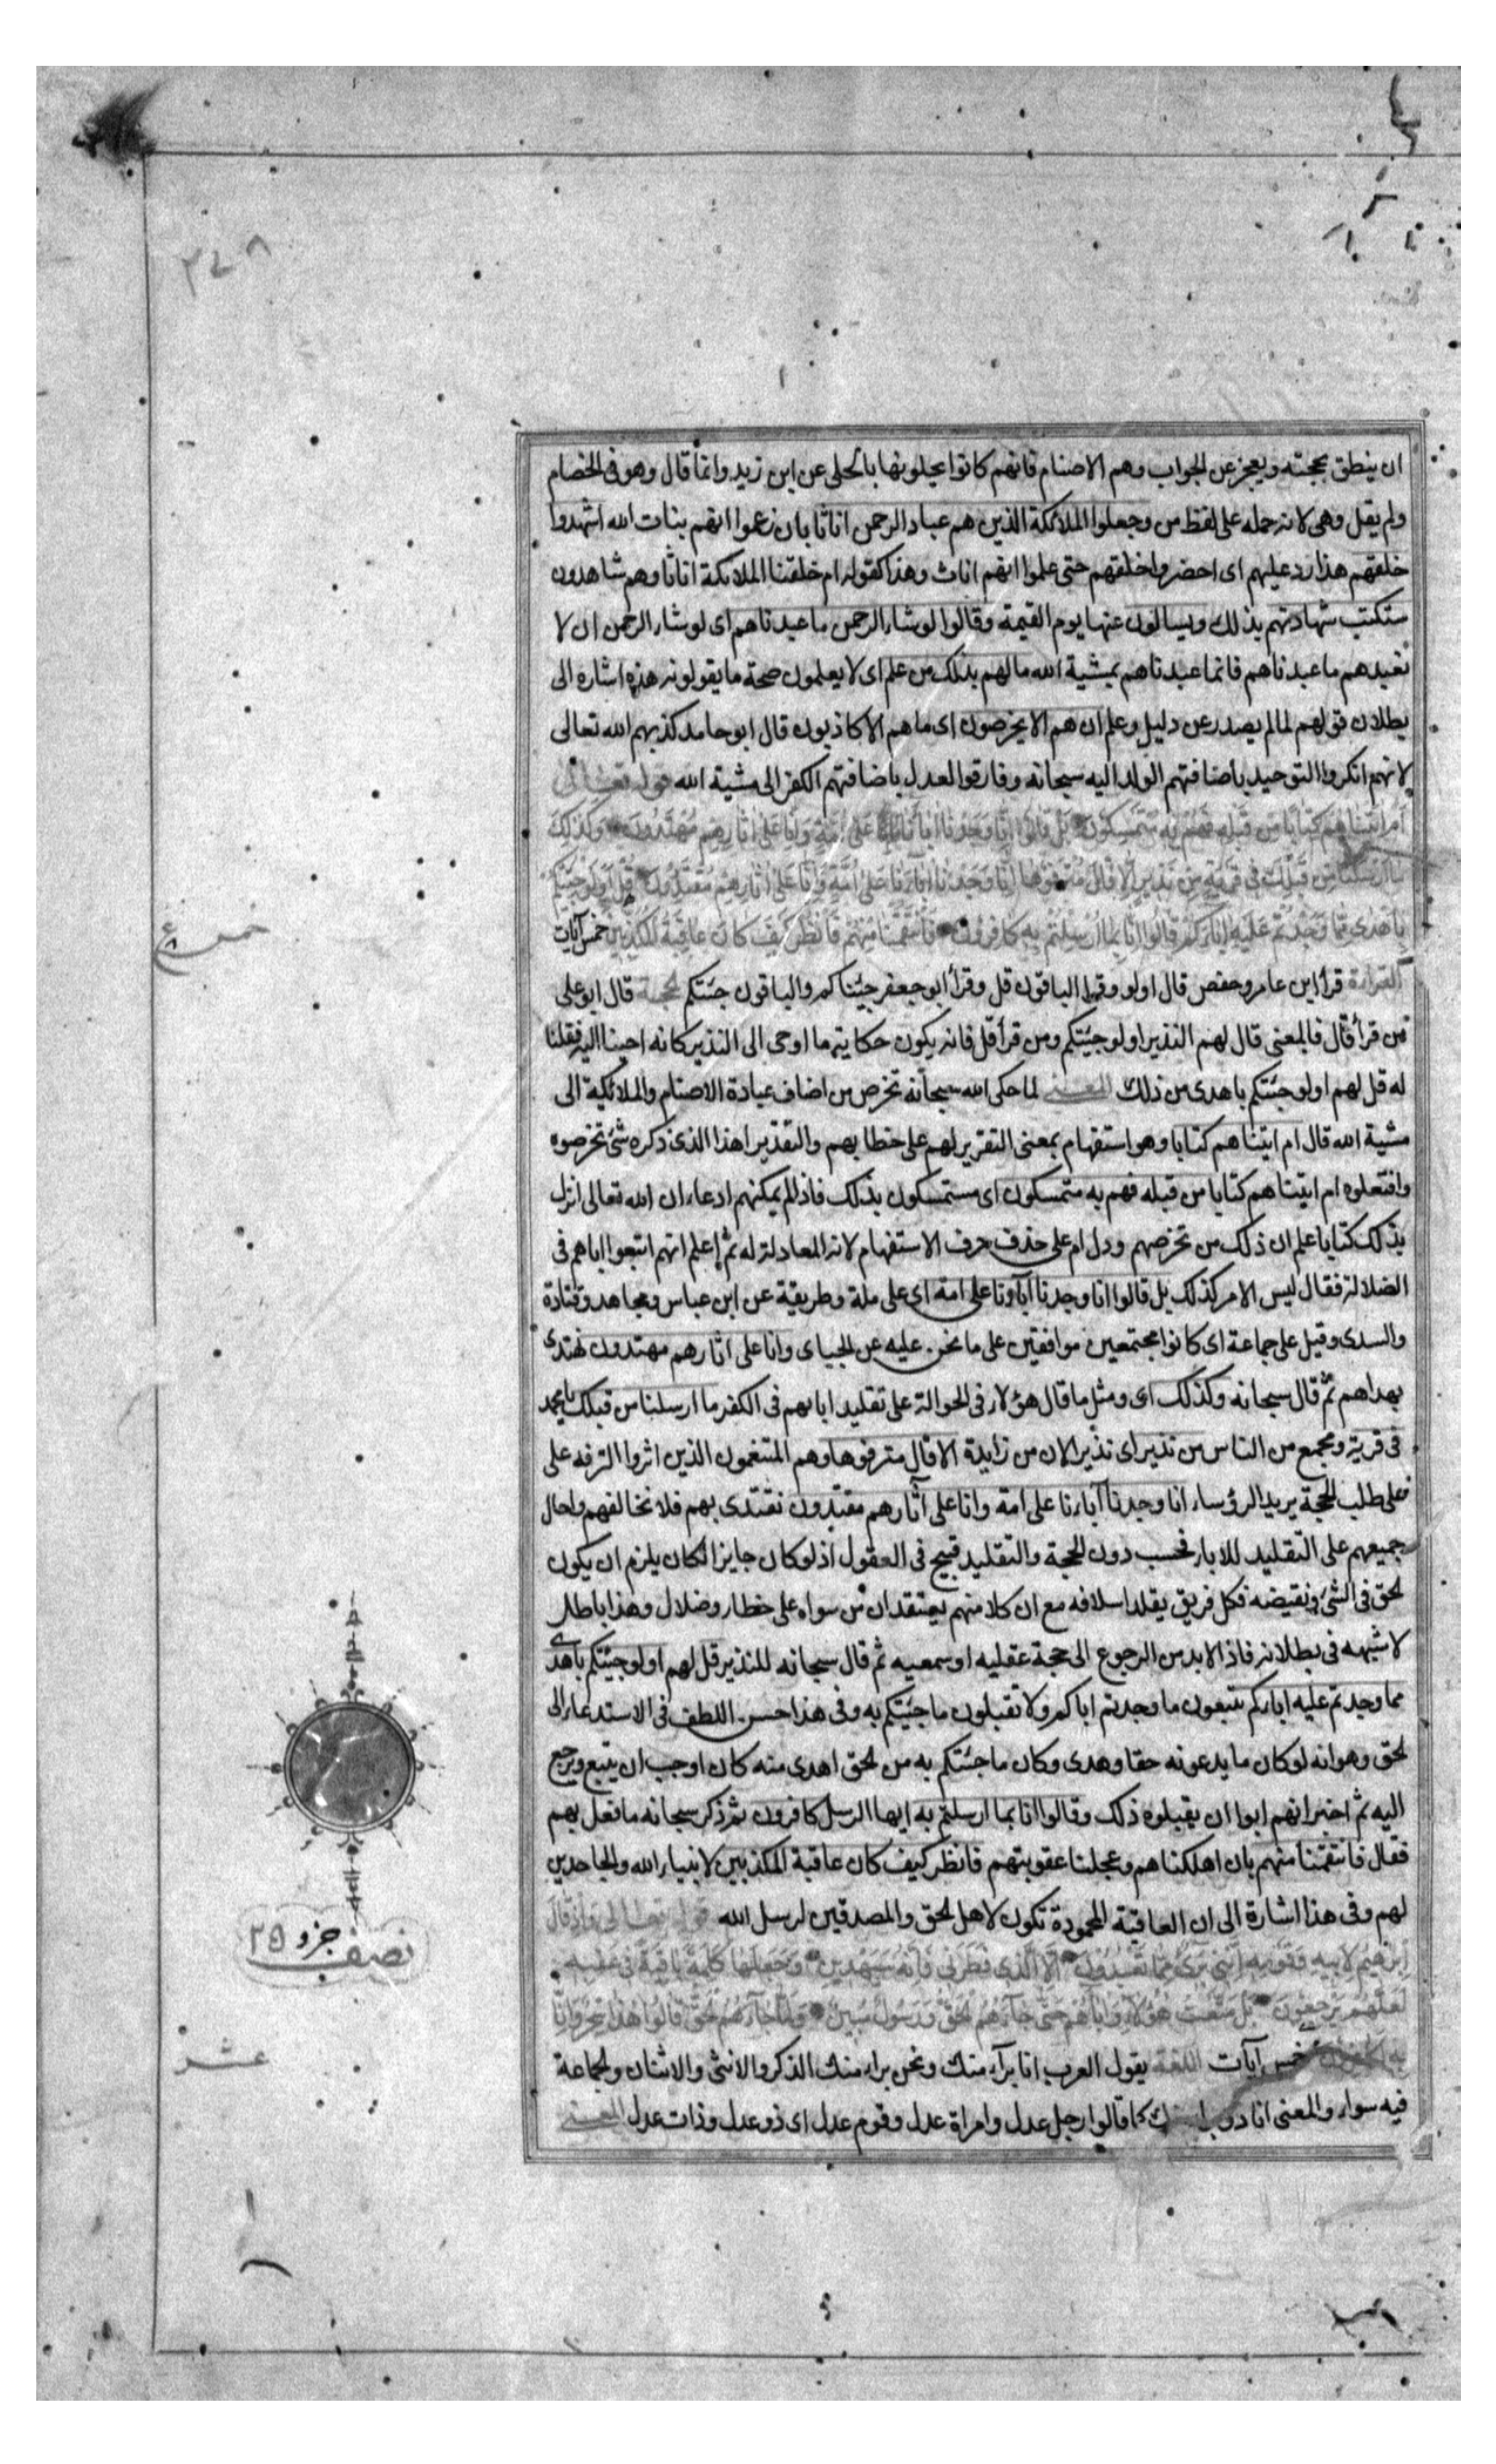 ان ينطق بحجته ويعجز عن الجواب وهم الاصنام فانهم كانوا يحلونها بالحلى عن ابن زيد وانما قال وهو فى الخصام
ولم يقل وهى لانه حمله على لفظ من وجعلوا الملائكة الذين هم عباد الرحمن اناثا بان زعموا انهم بنات الله اشهدوا
خلقهم هذا رد عليهم اى احضروا خلقهم حتى علموا انهم اناث وهذا كقوله ام خلقنا الملائكة اناثا وهم شاهدون
ستكتب شهادتهم بذلك ويسالون عنها يوم القيمة وقالوا لو شاء الرحمن ما عبدناهم اى لو شاء الرحمن ان لا
نعبدهم ما عبدناهم فانما عبدناهم بمشية الله مالهم بذلك من علم اى لا يعلمون صحة ما يقولونه هذه اشاره الى
بطلان قولهم لما لم يصدر عن دليل وعلم ان هم الا يخرصون اى ما هم الا كاذبون قال ابو حامد كذبهم الله تعالى
لانهم انكروا التوحيد باضافتهم الولد اليه سبحانه وفارقوا العدل باضافتهم الكفر الى مشية الله قوله تعالى
اَم اٰتيناهم كتابًا من قبله فهم به مستمسكون بل قالوا انا وجدنا اباءنا على امة وانا على اثارهم مهتدون وكذلك
ما ارسلنا من قبلك فى قرية من نذير الا قال مترفوها انا وجدنا اباءنا على امة وانا على اثارهم مقتدون قل اولو جئتكم
باهدى مما وجدتم عليه اباءكم قالوا انا بما ارسلتم به كافرون فانتقمنا منهم فانظر كيف كان عاقبة المكذبين خمس آيات
القراءة قرأ ابن عامر وحفص قال اولو وقرا الباقون قل وقرأ ابو جعفر جئناكم والباقون جئتكم الحجة قال ابو على
من قرأ قال فالمعنى قال لهم النذير اولو جئتكم ومن قرأ قل فانه يكون حكاية ما اوحى الى النذير كانه احينا اليه فقلنا
له قل لهم اولو جئتكم باهدى من ذلك المعنى لما حكى الله سبحانه تخرص من اضاف عبادة الاصنام والملائكة الى
مشية الله قال ام اتيناهم كتابا وهو استفهام بمعنى التقرير لهم على خطابهم والتقدير اهذا الذى ذكره شئ تخرصوه
وافتعلوه ام اتيناهم كتابا من قبله فهم به متمسكون اى مستمسكون بذلك فاذا لم يمكنهم ادعاء ان الله تعالى انزل
بذلك كتابا علم ان ذلك من تخرصهم ودل ام على حذف حرف الاستفهام لانه المعادلة له ثم اعلم انهم اتبعوا اباهم فى
الضلالة فقال ليس الامر كذلك بل قالوا انا وجدنا آباونا على امة اى على ملة وطريقة عن ابن عباس ومجاهد وقتادة
والسدى وقيل على جماعة اى كانوا مجتمعين موافقين على ما نحن عليه عن الجباى وانا على اثارهم مهتدون نهتدى
بهداهم ثم قال سبحانه وكذلك اى ومثل ما قال هؤلاء فى الحوالة على تقليد ابائهم فى الكفر ما ارسلنا من قبلك يا محمد
فى قرية ومجمع من الناس من نذير اى نذير الان من زايدة الا قال مترفوها وهم المتنعمون الذين اثروا الترفه على
فعلى طلب الحجة يريد الرؤساء انا وجدنا آباءنا على امة وانا على آثارهم مقتدون نقتدى بهم فلا نخالفهم واحال
جميعهم على التقليد للاباء فحسب دون الحجة والتقليد قبيح فى العقول اذ لو كان جايزا لكان يلزم ان يكون
الحق فى الشئ ونقيضه فكل فريق يقلد اسلافه مع ان كلا منهم يعتقد ان من سواه على خطاء وضلال وهذا باطل
لا شبهه فى بطلانه فاذا لابد من الرجوع الى حجة عقليه او سمعيه ثم قال سبحانه للنذير قل لهم اولو جئتكم باهدى
مما وجدتم عليه اباءكم تتبعون ما وجدتم اباكم ولا تقبلون ما جئتكم به وفى هذا حسن اللطف فى الاستدعاء الى
الحق وهو انه لو كان ما يدعونه حقا وهدى وكان ما جئتكم به من الحق اهدى منه كان اوجب ان يتبع ويرجع
اليه ثم اخبر انهم ابوا ان يقبلوه ذلك وقالوا انا بما ارسلتم به ايها الرسل كافرون ثم ذكر سبحانه ما فعل بهم
فقال فانتقمنا منهم بان اهلكناهم وعجلنا عقوبتهم فانظر كيف كان عاقبة المكذبين لانبياء الله والجاحدين
لهم وفى هذا اشارة الى ان العاقبة المحمودة تكون لاهل الحق والمصدقين لرسل الله قوله تعالى واذ قال
ابرهيم لابيه وقومه اننى برىء مما تعبدون الا الذى فطرنى فانه سيهدين وجعلها كلمة باقية فى عقبه
لعلهم يرجعون بل متعت هؤلاء واباءهم حتى جاءهم الحق ورسول مبين ولما جاءهم الحق قالوا هذا سحر وانا
به كافرون خمس آيات اللغة يقول العرب انا برآء منك ونحن براء منك الذكر والانثى والاثنان والجماعة
فيه سواء والمعنى انا ذو كما قالوا رجل عدل وامراة عدل وقوم عدل اى ذو عدل وذات عدل المعنى
خمس
نصف جزو ٢٥
عشر